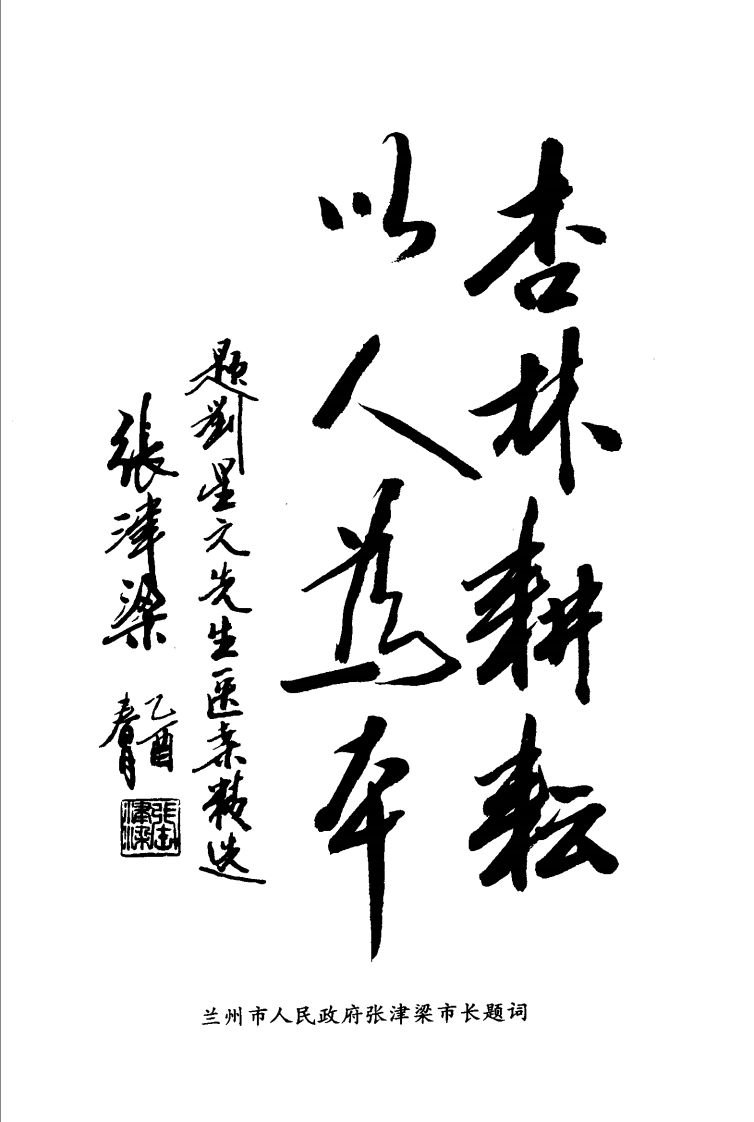 杏林耕耘
以人為本
題劉星元先生医案精选
張津梁
乙酉
春月
兰州市人民政府张津梁市长题词